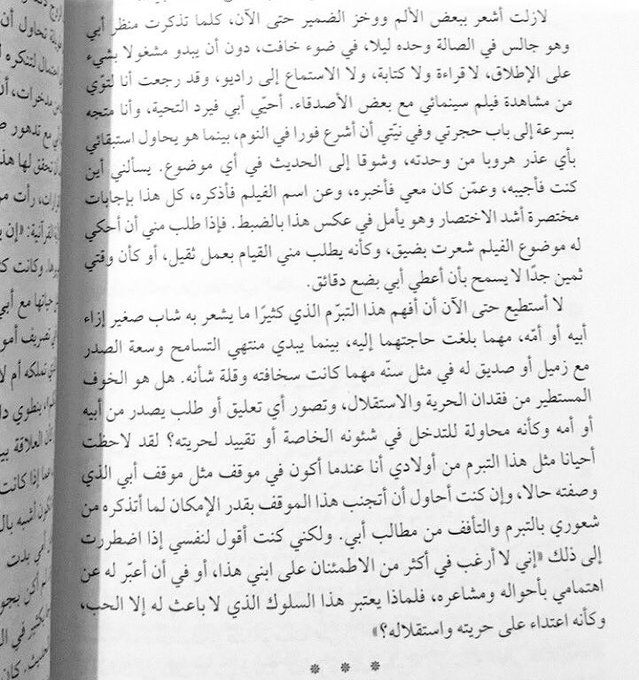 لازلت أشعر ببعض الألم ووخز الضمير حتى الآن، كلما تذكرت منظر أبي
وهو جالس في الصالة وحده ليلا، في ضوء خافت، دون أن يبدو مشغولا بشيء
على الإطلاق، لا قراءة ولا كتابة، ولا الاستماع إلى راديو، وقد رجعت أنا لتوّي
من مشاهدة فيلم سينمائي مع بعض الأصدقاء. أحيّي أبي فيرد التحية، وأنا متجه
بسرعة إلى باب حجرتي وفي نيّتي أن أشرع فورا في النوم، بينما هو يحاول استبقائي
بأي عذر هروبا من وحدته، وشوقا إلى الحديث في أي موضوع. يسألني أين
كنت فأجيبه، وعمّن كان معي فأخبره، وعن اسم الفيلم فأذكره، كل هذا بإجابات
مختصرة أشد الاختصار وهو يأمل في عكس هذا بالضبط. فإذا طلب مني أن أحكي
له موضوع الفيلم شعرت بضيق، وكأنه يطلب مني القيام بعمل ثقيل، أو كأن وقتي
ثمين جدًا لا يسمح بأن أعطي أبي بضع دقائق.
لا أستطيع حتى الآن أن أفهم هذا التبرّم الذي كثيرًا ما يشعر به شاب صغير إزاء
أبيه أو أمّه، مهما بلغت حاجتهما إليه، بينما يبدي منتهي التسامح وسعة الصدر
مع زميل أو صديق له في مثل سنّه مهما كانت سخافته وقلة شأنه. هل هو الخوف
المستطير من فقدان الحرية والاستقلال، وتصور أي تعليق أو طلب يصدر من أبيه
أو أمه وكأنه محاولة للتدخل في شئونه الخاصة أو تقييد لحريته؟ لقد لاحظت
أحيانا مثل هذا التبرم من أولادي أنا عندما أكون في موقف مثل موقف أبي الذي
وصفته حالا، وإن كنت أحاول أن أتجنب هذا الموقف بقدر الإمكان لما أتذكره من
شعوري بالتبرم والتأفف من مطالب أبي. ولكني كنت أقول لنفسي إذا اضطررت
إلى ذلك «إني لا أرغب في أكثر من الاطمئنان على ابني هذا، أو في أن أعبّر له عن
اهتمامي بأحواله ومشاعره، فلماذا يعتبر هذا السلوك الذي لا باعث له إلا الحب،
وكأنه اعتداء على حريته واستقلاله؟»
* * *